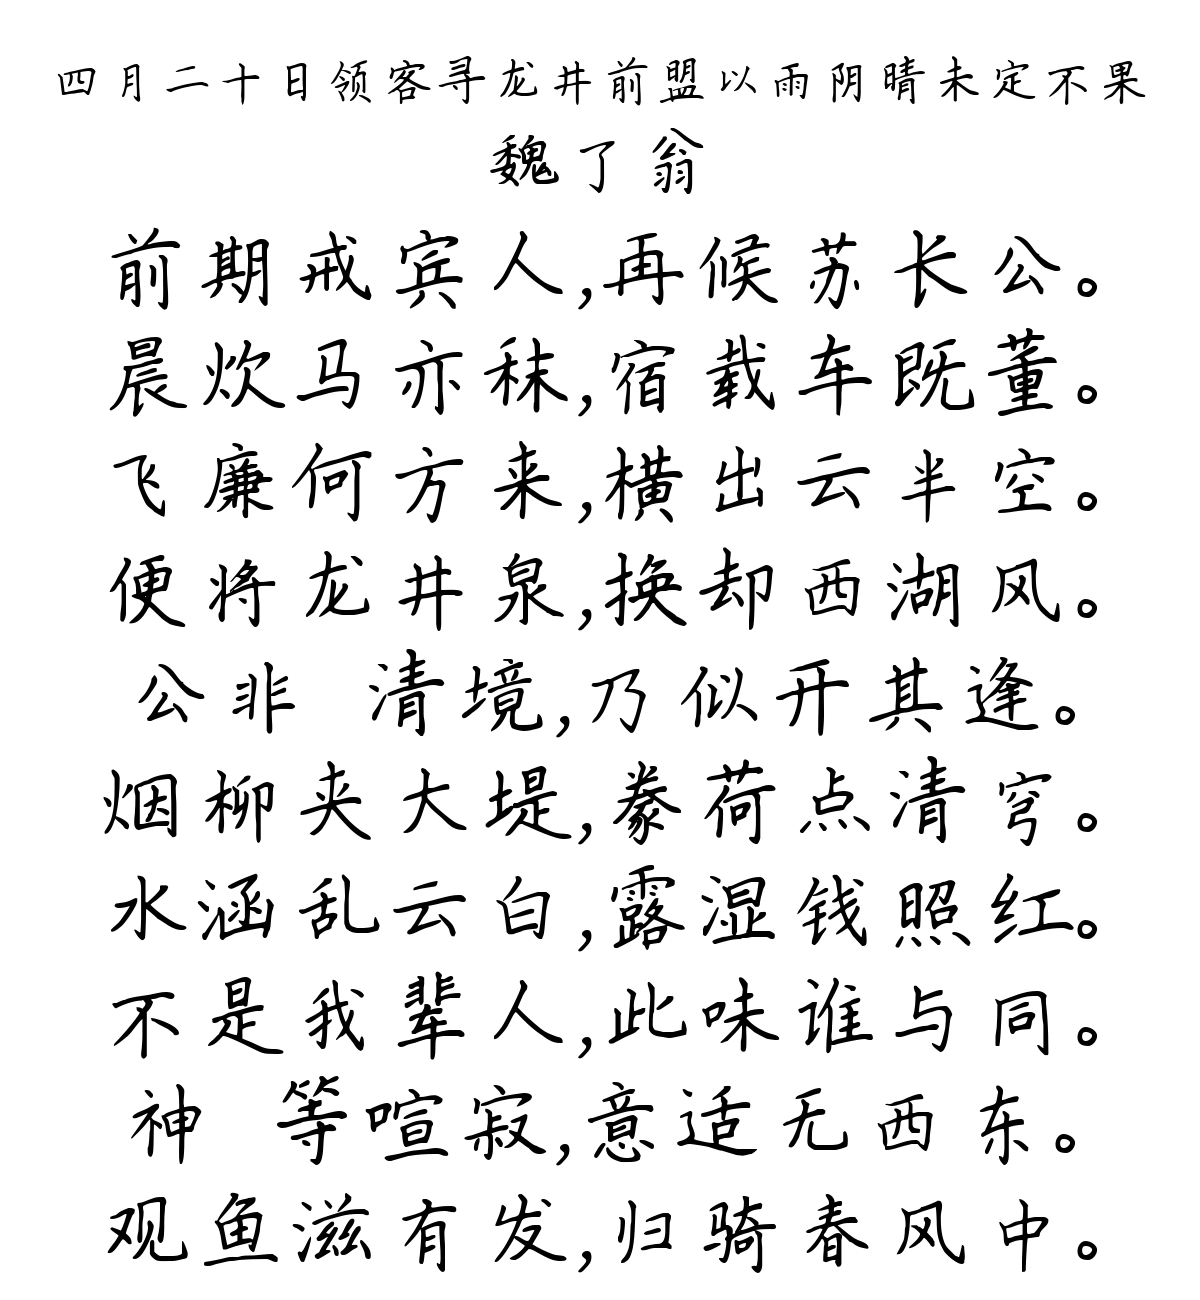 四月二十日领客寻龙井前盟以雨阴晴未定不果
魏了翁
前期戒宾人,再候苏长公。
晨炊马亦秣,宿载车既董。
飞廉何方来,横出云半空。
便将龙井泉,换却西湖风。
公非 清境,乃似开其逢。
烟柳夹大堤,豢荷点清穹。
水涵乱云白,露湿钱照红。
不是我辈人,此味谁与同。
神 等喧寂,意适无西东。
观鱼滋有发,归骑春风中。